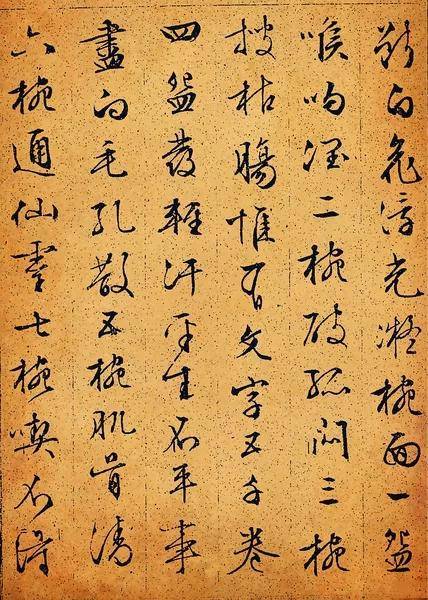 斷白花浮光凝椀面一盌
喉吻潤二椀破孤悶三椀
搜枯腸惟有文字五千卷
四盌發輕汗平生不平事
盡向毛孔散五椀肌骨清
六椀通仙靈七椀喫不得